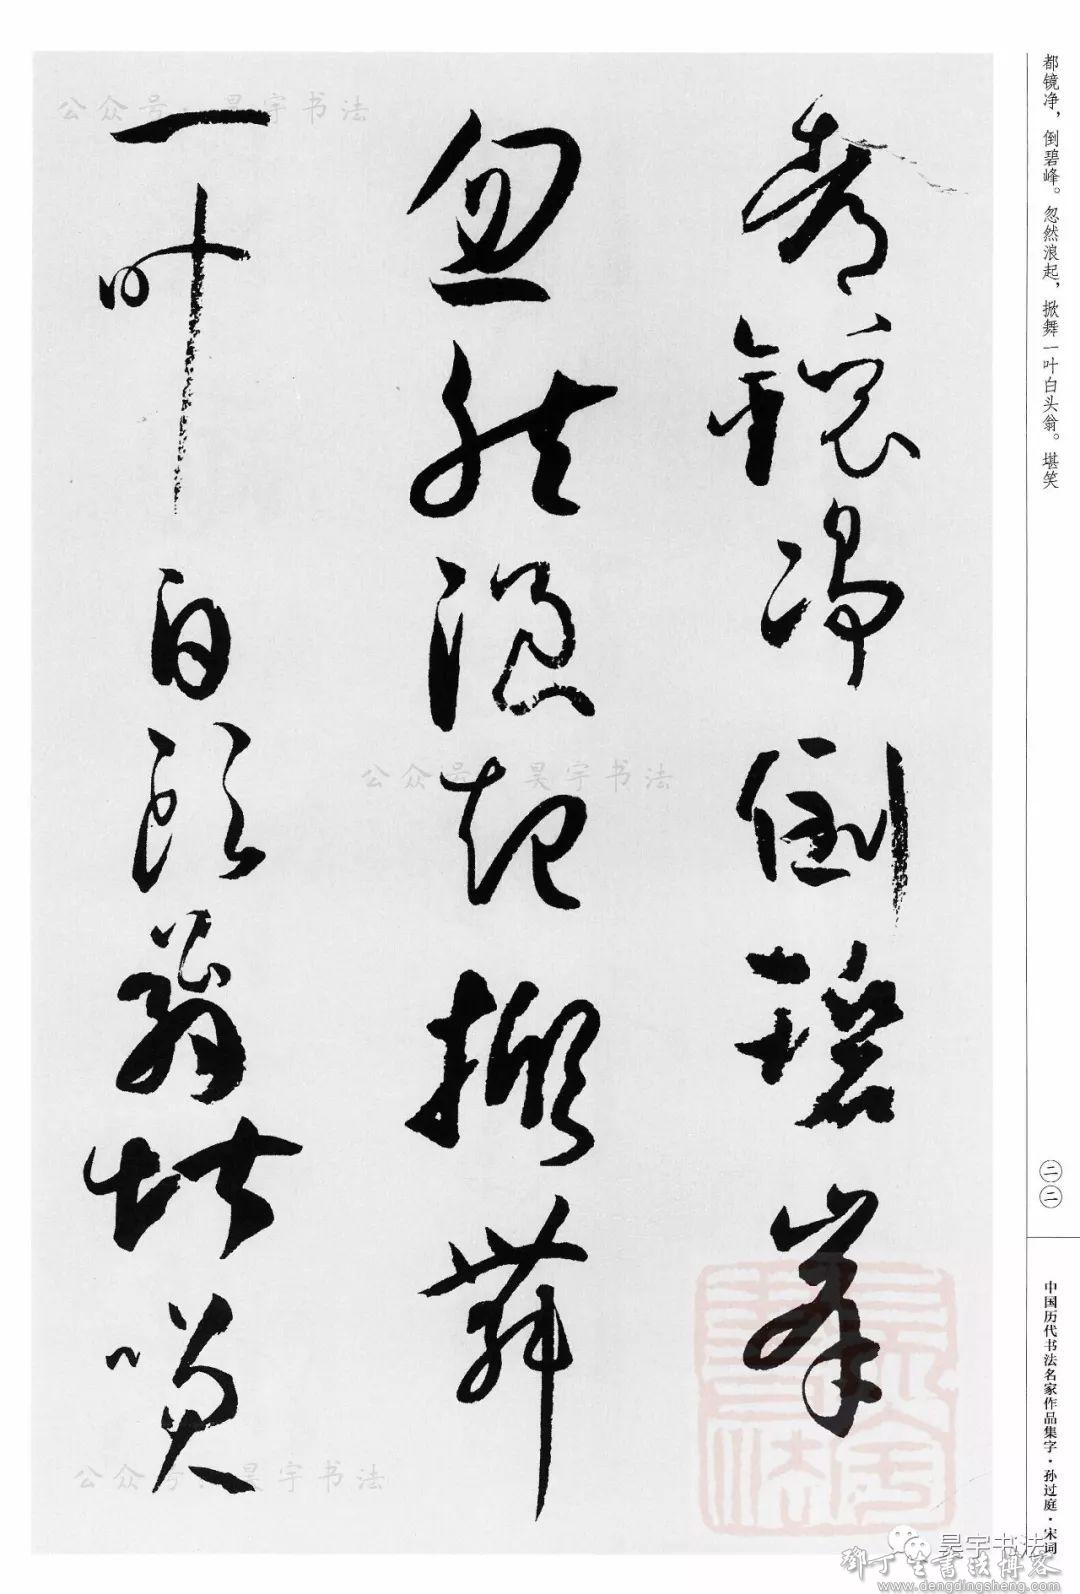 都镜净倒碧峰
忽然浪起掀舞
一叶白头翁堪笑
都镜净，倒碧峰。忽然浪起，掀舞一叶白头翁。堪笑
二二
中国历代书法名家作品集字·孙过庭·宋词
公众号：昊宇书法
公众号：昊宇书法
公众号：昊宇书法
昊宇书法
邓丁生书法博客
www.dengdingsheng.com